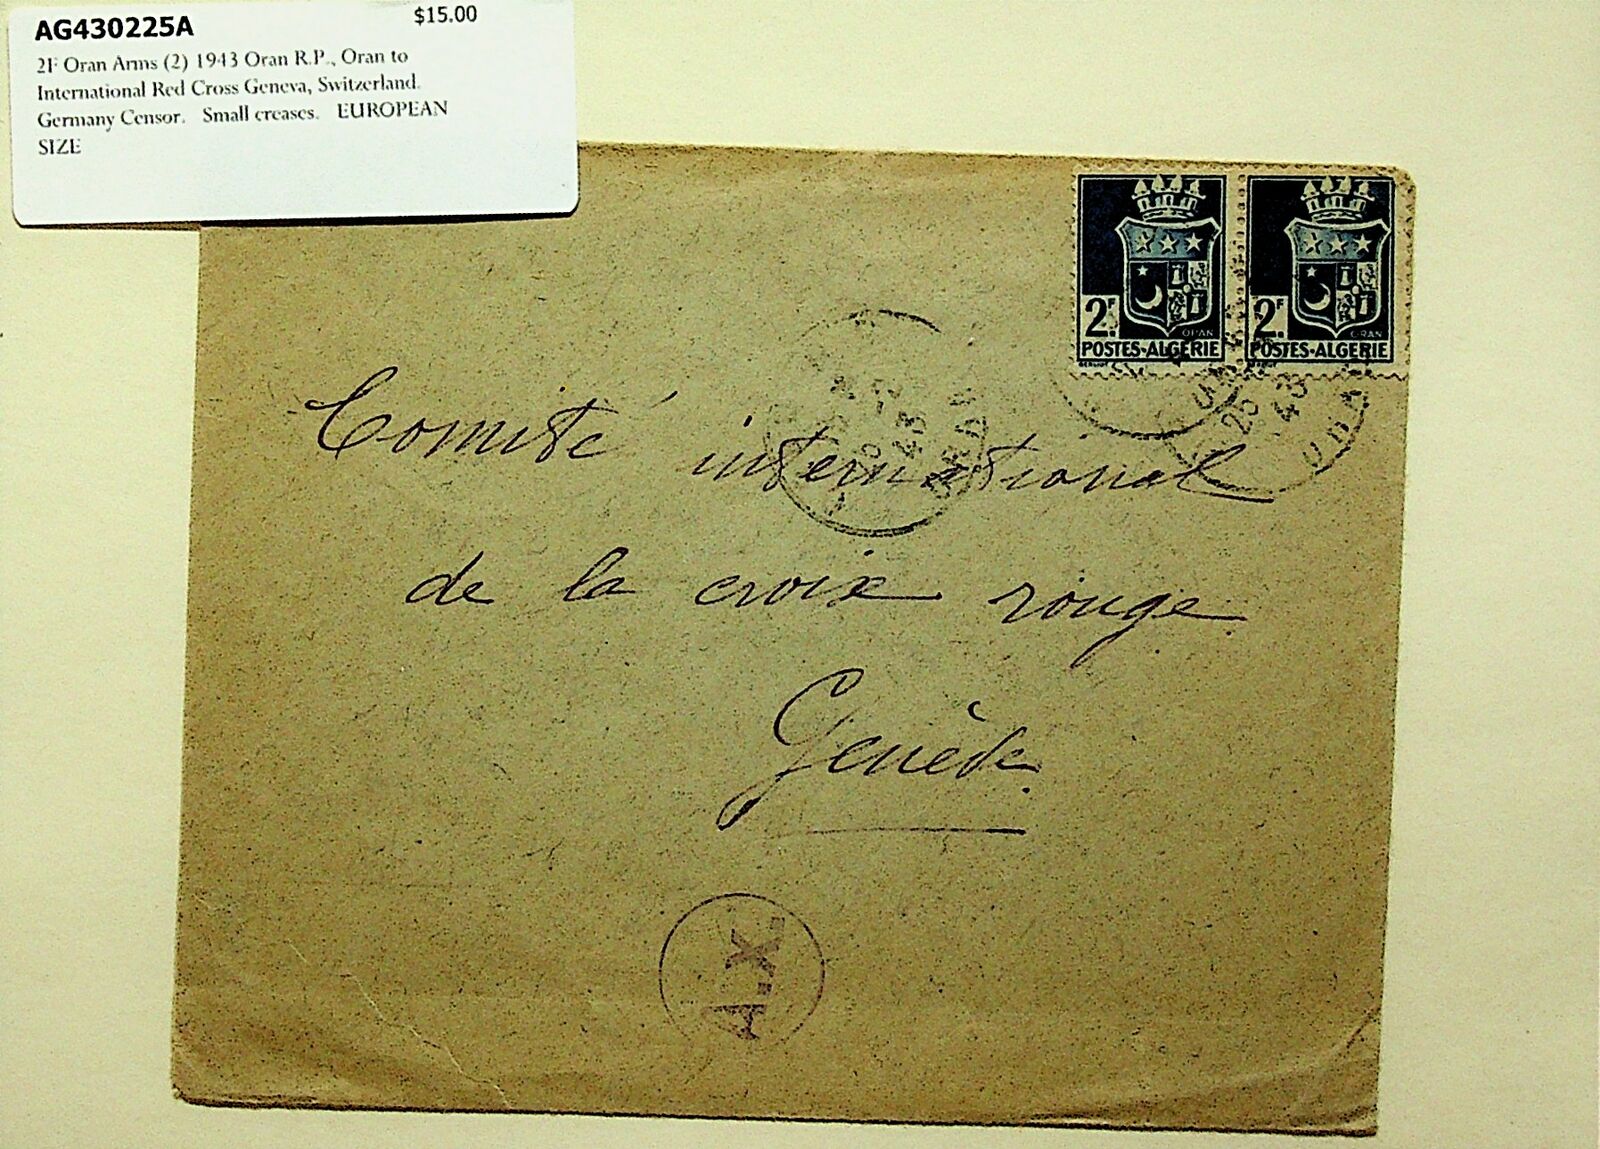 AG430225A
$15.00
2F Oran Arms (2) 1943 Oran R.P., Oran to
International Red Cross Geneva, Switzerland.
Germany Censor. Small creases. EUROPEAN
SIZE
2F.
ORAN
POSTES-ALGÉRIE
2F.
ORAN
POSTES-ALGÉRIE
25
43
43
Comité international
de la croix rouge
Genève
A.X.